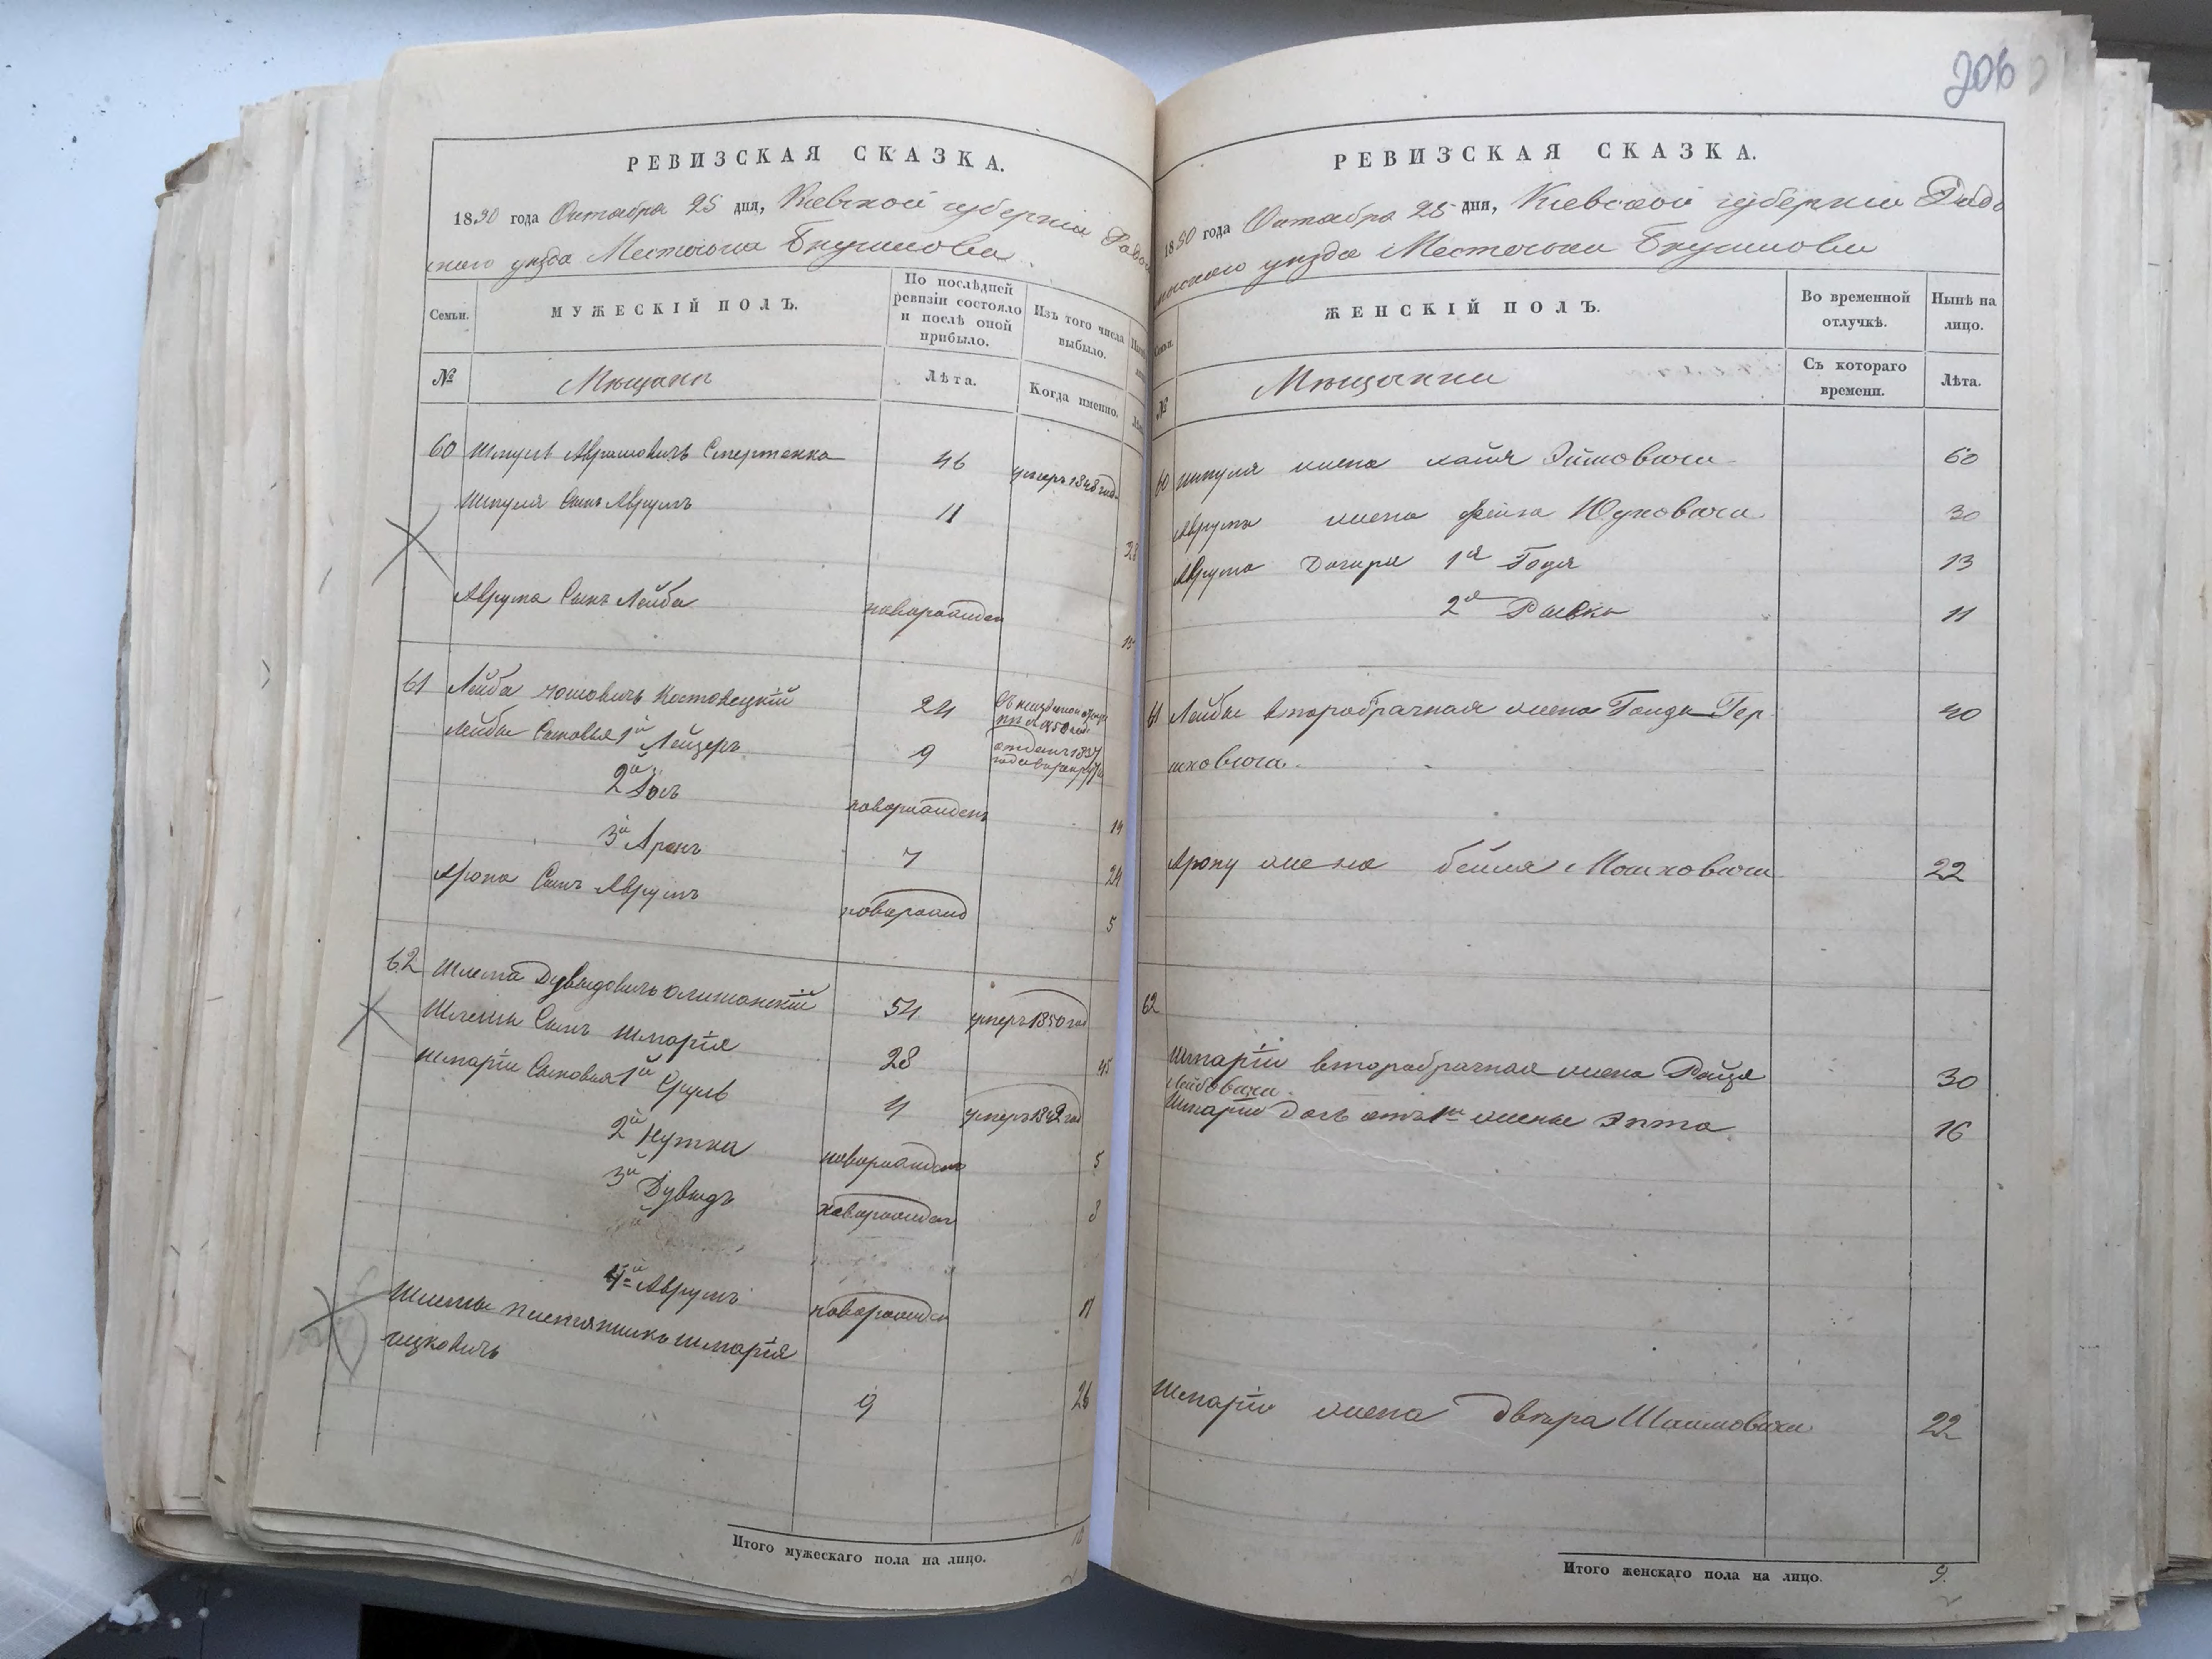 206
РЕВИЗСКАЯ СКАЗКА.
1850 года Октабра 25 дня, Киевской губерніи Радо
мысльскаго уѣзда Местечка
Семьи.
МУЖЕСКІЙ ПОЛЪ.
По послѣдней ревизіи состояло и послѣ оной прибыло.
Изъ того числа выбыло.
№
Мѣщани
Лѣта.
Когда именно.
60 Шмуль Аврумовичъ 46 умеръ 1848 года
Шмуля Сынъ Аврумъ 11 28
Аврума Сынъ Лейба новорожден 13
61 Лейба 24
Лейбы Сыновья 1й Лейзеръ 9 отданъ 1837
года в рекруты
2й Іосъ новорожденъ 14
3й Аронъ 7 24
Арона Сынъ Аврумъ новорожд 5
62 Шлема Дувыдовичъ 54 умеръ 1850 год
Шлемы Сынъ Шмарія 28 45
Шмаріи Сыновья 1й Сруль 4 умеръ 1842 год
2й Нутка новорожденъ 5
3й Дувыдъ новорожден 3
4й Аврумъ новорожден 11
Шлемы племянникъ Шмарія
Ицковичъ 9 26
Итого мужескаго пола на лицо. 10
РЕВИЗСКАЯ СКАЗКА.
1850 года Октабра 25 дня, Киевской губерніи Радо
мысльскаго уѣзда Местечка
№
ЖЕНСКІЙ ПОЛЪ.
Во временной отлучкѣ.
Нынѣ на лицо.
Мѣщанки
Съ котораго времени.
Лѣта.
60 Шмуля жена Хая 60
Аврума жена Фейга Юдковича 30
Аврума Дочери 1я Годя 13
2я Ривка 11
61 Лейбы вторабрачная жена Голда Гер 40
шковича.
Арону жена Бейля Мошковича 22
62
Шмаріи вторабрачная жена Райзя 30
Лейбовича
Шмаріи Дочь отъ 1й жены Эпта 16
Шмаріи жена Двейра Шаимовича 22
Итого женскаго пола на лицо. 9.